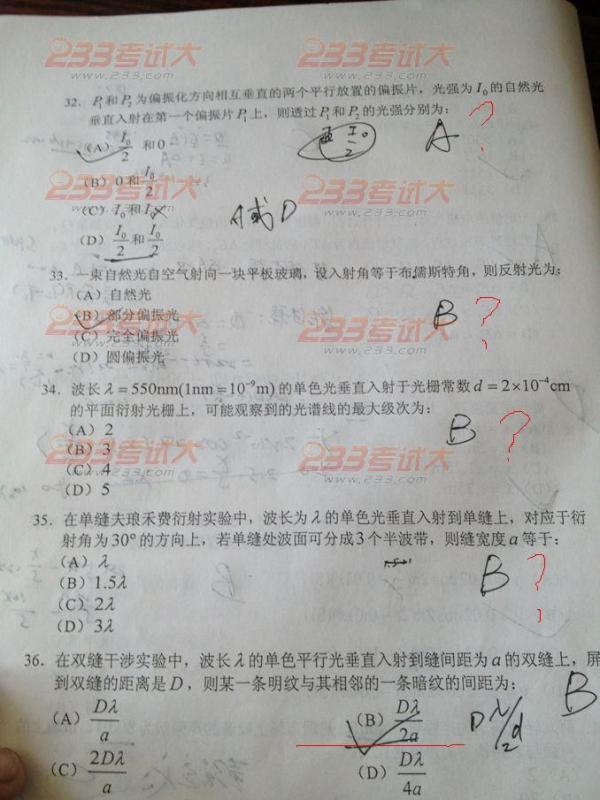 233考试大
www.233.com
233考试大
www.233.com
32. P₁和P₂为偏振化方向相互垂直的两个平行放置的偏振片，光强为 I₀ 的自然光
垂直入射在第一个偏振片 P₁ 上，则透过 P₁和P₂ 的光强分别为：
(A) I₀/2 和 0
I₀/2
A ?
(B) 0 和 I₀/2
(C) I₀ 和 I₀
A或D
(D) I₀/2 和 I₀/2
233考试大
www.233.com
233考试大
www.233.com
33. 一束自然光自空气射向一块平板玻璃，设入射角等于布儒斯特角，则反射光为：
(A) 自然光
(B) 部分偏振光
B ?
(C) 完全偏振光
(D) 圆偏振光
34. 波长 λ = 550nm(1nm = 10⁻⁹m) 的单色光垂直入射于光栅常数 d = 2×10⁻⁴cm
的平面衍射光栅上，可能观察到的光谱线的最大级次为：
(A) 2
(B) 3
B ?
(C) 4
(D) 5
233考试大
www.233.com
233考试大
www.233.com
35. 在单缝夫琅禾费衍射实验中，波长为 λ 的单色光垂直入射到单缝上，对应于衍
射角为 30° 的方向上，若单缝处波面可分成 3 个半波带，则缝宽度 a 等于：
(A) λ
(B) 1.5λ
B ?
(C) 2λ
(D) 3λ
36. 在双缝干涉实验中，波长 λ 的单色平行光垂直入射到缝间距为 a 的双缝上，屏
到双缝的距离是 D，则某一条明纹与其相邻的一条暗纹的间距为：
B
(A) Dλ/a
(B) Dλ/2a
(C) 2Dλ/a
(D) Dλ/4a